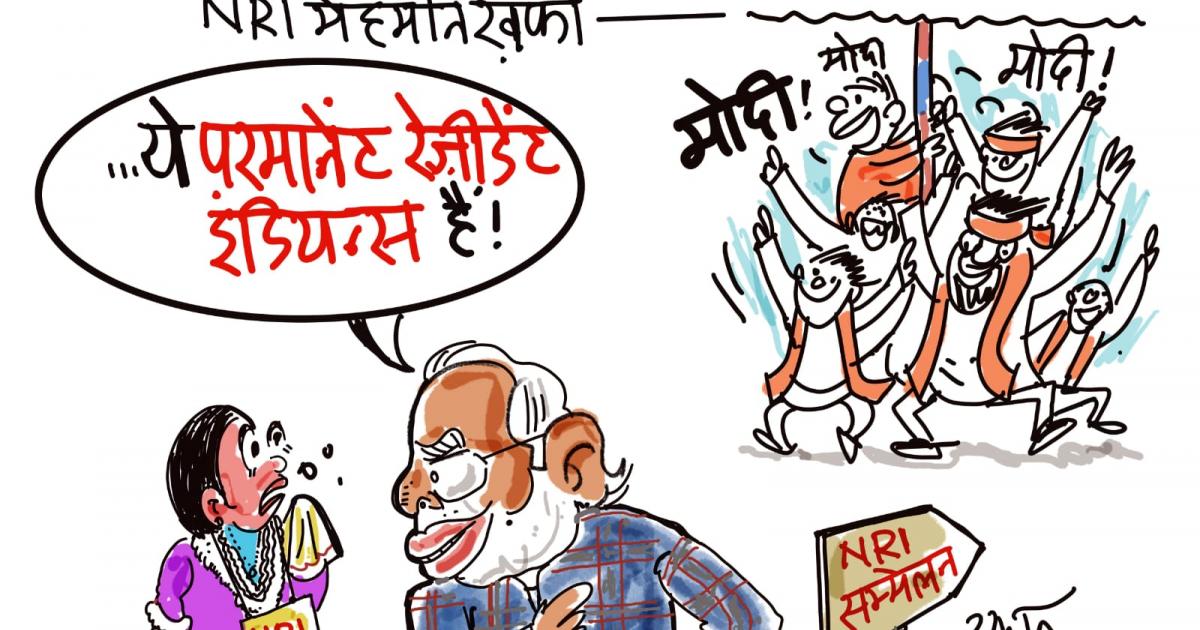 NRI मेहमान ख़फ़ा
मोदी
मोदी!
मोदी!
...ये परमानेंट रेज़ीडेंट
इंडियन्स हैं!
NRI
सम्मेलन
NRI